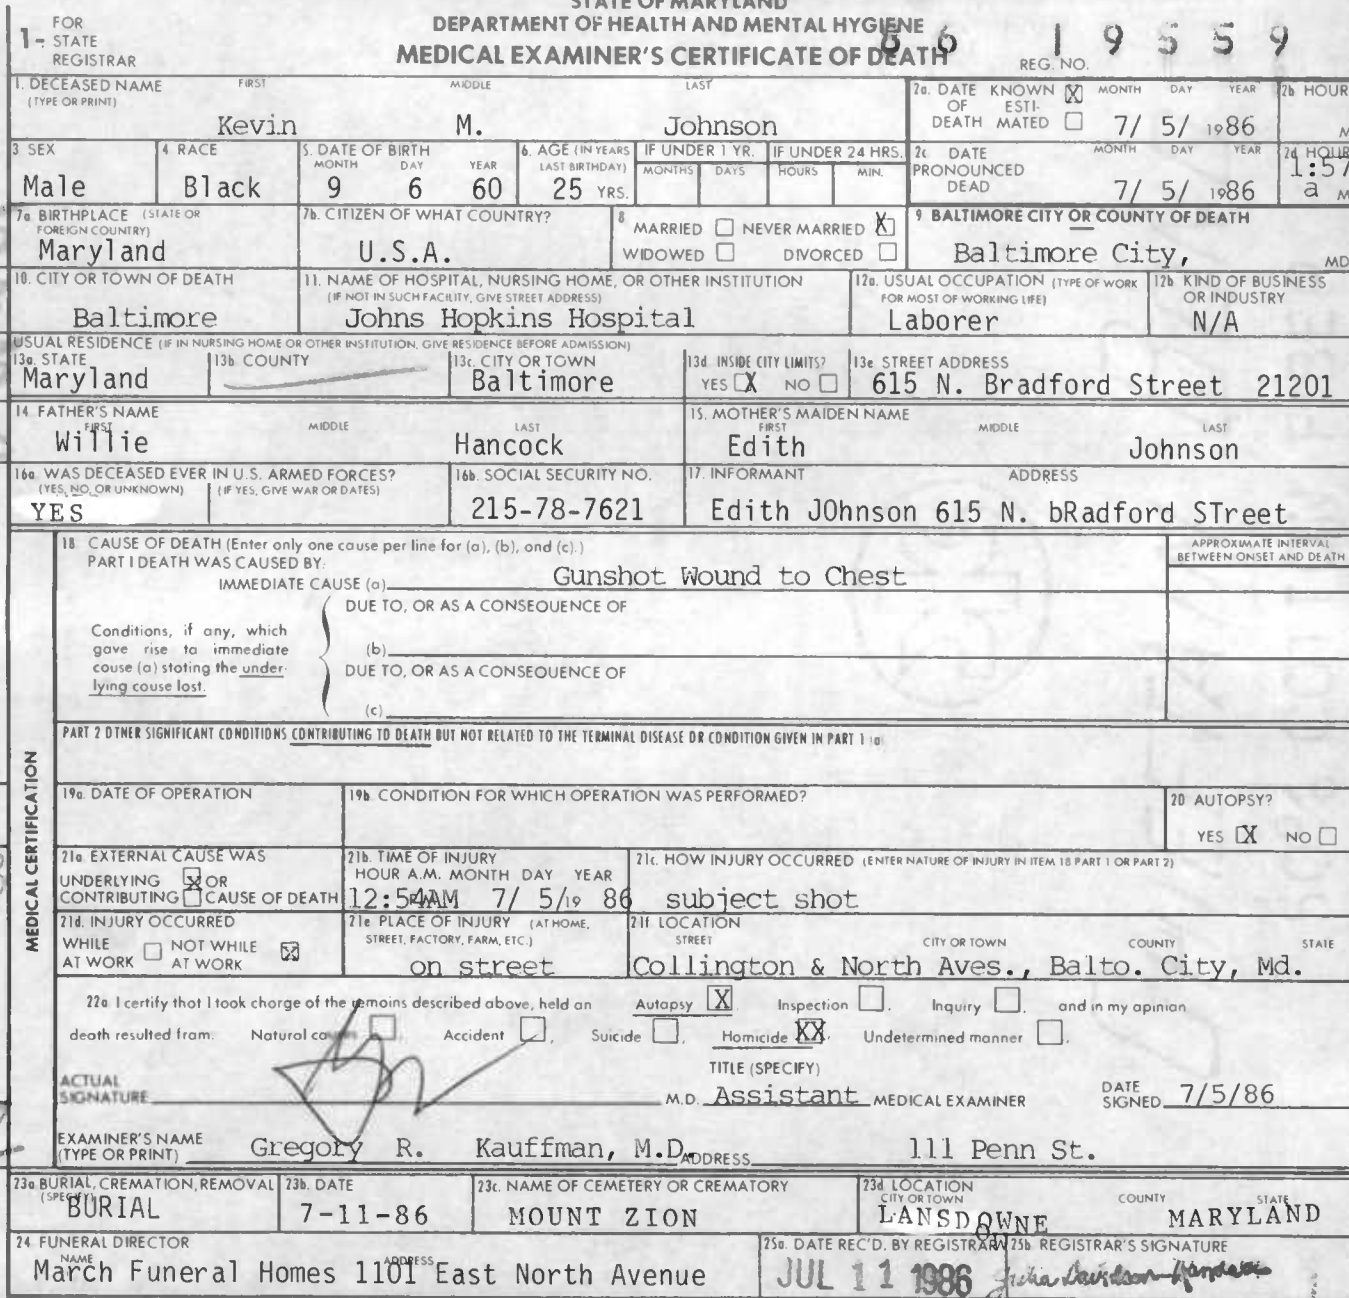 STATE OF MARYLAND
DEPARTMENT OF HEALTH AND MENTAL HYGIENE
MEDICAL EXAMINER'S CERTIFICATE OF DEATH
1- FOR STATE REGISTRAR
REG. NO. 86 19559
1. DECEASED NAME (TYPE OR PRINT) FIRST MIDDLE LAST
Kevin M. Johnson
2a. DATE OF DEATH KNOWN X ESTIMATED MONTH DAY YEAR
7/ 5/ 1986
2b HOUR M
3 SEX Male
4 RACE Black
5. DATE OF BIRTH MONTH DAY YEAR
9 6 60
6. AGE (IN YEARS LAST BIRTHDAY) 25 YRS.
IF UNDER 1 YR. MONTHS DAYS
IF UNDER 24 HRS. HOURS MIN.
2c DATE PRONOUNCED DEAD MONTH DAY YEAR
7/ 5/ 1986
2d HOUR 1:57 a M
7a BIRTHPLACE (STATE OR FOREIGN COUNTRY)
Maryland
7b. CITIZEN OF WHAT COUNTRY?
U.S.A.
8 MARRIED NEVER MARRIED X
WIDOWED DIVORCED
9 BALTIMORE CITY OR COUNTY OF DEATH
Baltimore City, MD
10. CITY OR TOWN OF DEATH
Baltimore
11. NAME OF HOSPITAL, NURSING HOME, OR OTHER INSTITUTION
(IF NOT IN SUCH FACILITY, GIVE STREET ADDRESS)
Johns Hopkins Hospital
12a. USUAL OCCUPATION (TYPE OF WORK FOR MOST OF WORKING LIFE)
Laborer
12b KIND OF BUSINESS OR INDUSTRY
N/A
USUAL RESIDENCE (IF IN NURSING HOME OR OTHER INSTITUTION, GIVE RESIDENCE BEFORE ADMISSION)
13a. STATE Maryland
13b COUNTY
13c. CITY OR TOWN Baltimore
13d INSIDE CITY LIMITS? YES X NO
13e STREET ADDRESS
615 N. Bradford Street 21201
14 FATHER'S NAME FIRST MIDDLE LAST
Willie Hancock
15. MOTHER'S MAIDEN NAME FIRST MIDDLE LAST
Edith Johnson
16a. WAS DECEASED EVER IN U.S. ARMED FORCES?
(YES, NO, OR UNKNOWN) (IF YES, GIVE WAR OR DATES)
YES
16b. SOCIAL SECURITY NO.
215-78-7621
17. INFORMANT ADDRESS
Edith JOhnson 615 N. bRadford STreet
MEDICAL CERTIFICATION
18 CAUSE OF DEATH (Enter only one cause per line for (a), (b), and (c).)
PART I DEATH WAS CAUSED BY:
IMMEDIATE CAUSE (a) Gunshot Wound to Chest
APPROXIMATE INTERVAL BETWEEN ONSET AND DEATH
DUE TO, OR AS A CONSEQUENCE OF
Conditions, if any, which
gave rise to immediate
cause (a) stating the under-
lying cause last.
(b)
DUE TO, OR AS A CONSEQUENCE OF
(c)
PART 2 OTHER SIGNIFICANT CONDITIONS CONTRIBUTING TO DEATH BUT NOT RELATED TO THE TERMINAL DISEASE OR CONDITION GIVEN IN PART 1 (a)
19a. DATE OF OPERATION
19b. CONDITION FOR WHICH OPERATION WAS PERFORMED?
20 AUTOPSY?
YES X NO
21a. EXTERNAL CAUSE WAS
UNDERLYING X OR
CONTRIBUTING CAUSE OF DEATH
21b. TIME OF INJURY
HOUR A.M. MONTH DAY YEAR
12:54AM 7/ 5/19 86
21c. HOW INJURY OCCURRED (ENTER NATURE OF INJURY IN ITEM 18 PART 1 OR PART 2)
subject shot
21d. INJURY OCCURRED
WHILE AT WORK NOT WHILE AT WORK X
21e PLACE OF INJURY (AT HOME, STREET, FACTORY, FARM, ETC.)
on street
21f LOCATION STREET CITY OR TOWN COUNTY STATE
Collington & North Aves., Balto. City, Md.
22a I certify that I took charge of the remains described above, held an Autopsy X, Inspection, Inquiry, and in my opinion
death resulted from: Natural causes, Accident, Suicide, Homicide XX, Undetermined manner.
TITLE (SPECIFY)
ACTUAL SIGNATURE M.D. Assistant MEDICAL EXAMINER
DATE SIGNED 7/5/86
EXAMINER'S NAME (TYPE OR PRINT) Gregory R. Kauffman, M.D. ADDRESS 111 Penn St.
23a BURIAL, CREMATION, REMOVAL (SPECIFY)
BURIAL
23b. DATE
7-11-86
23c. NAME OF CEMETERY OR CREMATORY
MOUNT ZION
23d LOCATION CITY OR TOWN COUNTY STATE
LANSDOWNE MARYLAND
24 FUNERAL DIRECTOR NAME ADDRESS
March Funeral Homes 1101 East North Avenue
25a. DATE REC'D. BY REGISTRAR
JUL 11 1986
25b REGISTRAR'S SIGNATURE